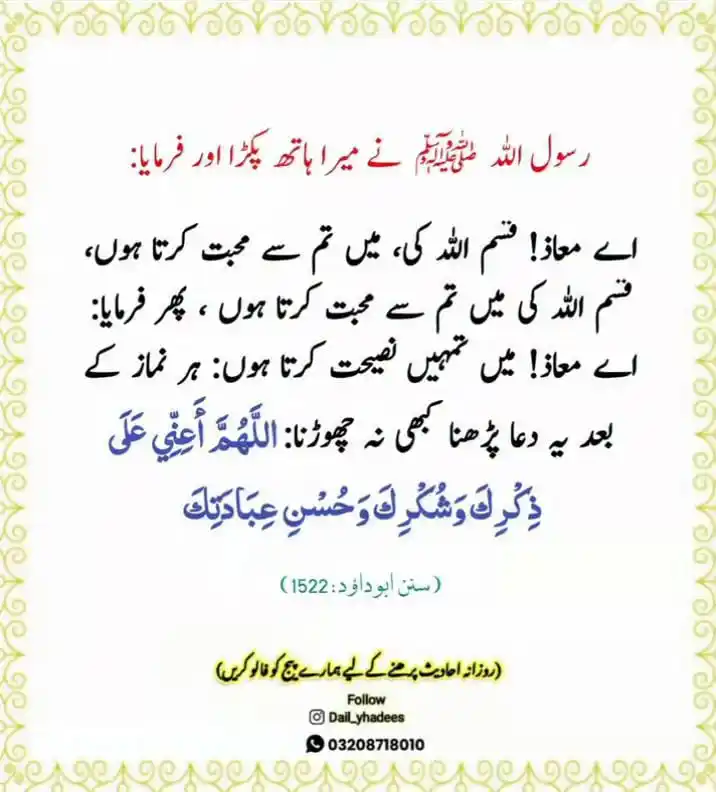 رسول اللہ ﷺ نے میرا ہاتھ پکڑا اور فرمایا:
اے معاذ! قسم اللہ کی، میں تم سے محبت کرتا ہوں،
قسم اللہ کی میں تم سے محبت کرتا ہوں ، پھر فرمایا:
اے معاذ! میں تمہیں نصیحت کرتا ہوں: ہر نماز کے
بعد یہ دعا پڑھنا کبھی نہ چھوڑنا: اللَّهُمَّ أَعِنِّي عَلَى
ذِكْرِكَ وَشُكْرِكَ وَحُسْنِ عِبَادَتِكَ
(سنن ابوداؤد: 1522)
(روزانہ احادیث پرھنے کے لیے ہمارے پیج کو فالو کریں)
Follow
Dail_yhadees
03208718010